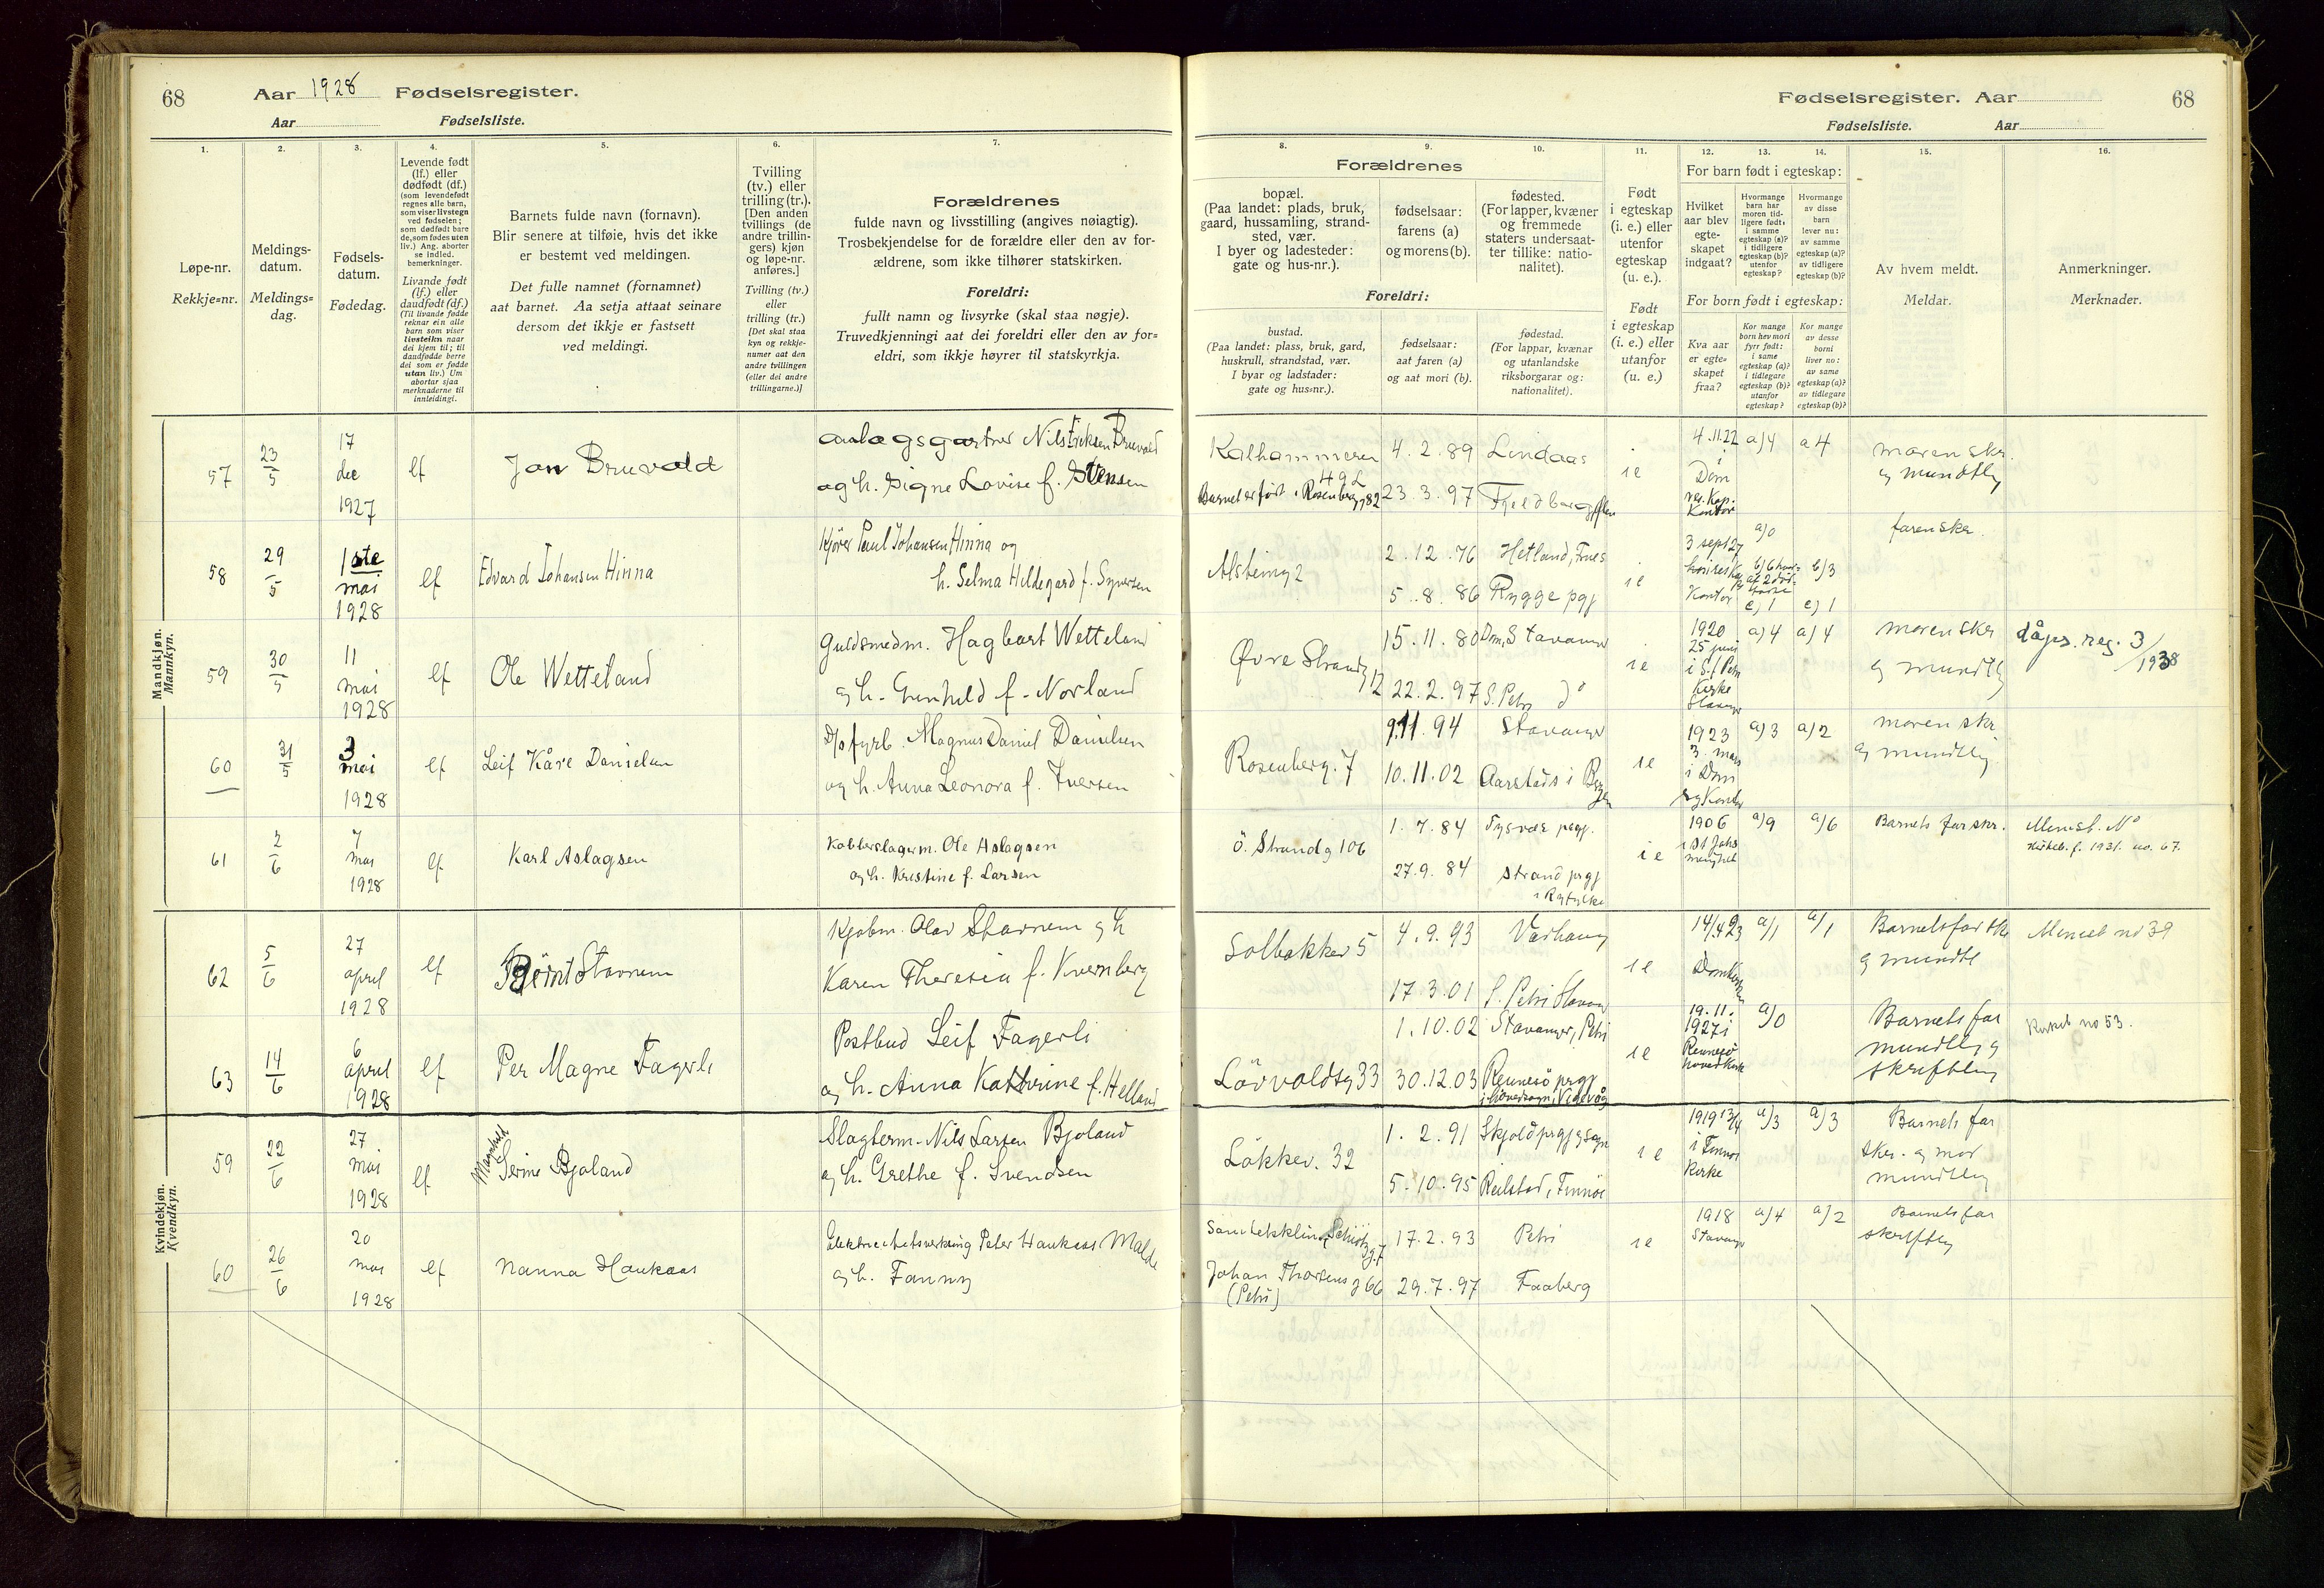 68 Aar 1928 Fødselsregister.
Aar Fødselsliste.
1.
2.
3.
4.
5.
6.
7.
Løpe-nr.
Rekkje=nr.
Meldings-
datum.
Meldings=
dag.
Fødsels-
datum.
Fødedag.
Levende født
(lf.) eller
dødfødt (df.)
(som levendefødt
regnes alle barn,
som viser livstegn
ved fødselen;
som dødfødt bare
de, som fødes uten
liv.) Ang. aborter
se indled.
bemerkninger.
Livande født
(lf.) eller
daudfødt (df.)
(Til livande fødde
reknar ein alle
barn som viser
livsteikn naar
dei kjem til; til
daudfødde berre
dei som er fødde
utan liv.) Um
abortar sjaa
merknaderne til
innleidingi.
Barnets fulde navn (fornavn).
Blir senere at tilføie, hvis det ikke
er bestemt ved meldingen.
Det fulle namnet (fornamnet)
aat barnet. Aa setja attaat seinare
dersom det ikkje er fastsett
ved meldingi.
Tvilling
(tv.) eller
trilling (tr.).
[Den anden
tvillings (de
andre trillin-
gers) kjøn
og løpe-nr.
anføres.]
Tvilling (tv.)
eller
trilling (tr.)
[Det skal staa
kyn og rekkje-
numer aat den
andre tvillingen
(eller dei andre
trillingarne.)]
Forældrenes
fulde navn og livsstilling (angives nøiagtig).
Trosbekjendelse for de forældre eller den av for-
ældrene, som ikke tilhører statskirken.
Foreldri:
fullt namn og livsyrke (skal staa nøgje).
Truvedkjenningi aat dei foreldri eller den av for=
eldri, som ikkje høyrer til statskyrkja.
Mandkjøn.
Mannkyn.
57 23/5 17 dec 1927 lf Jan Bruvold
Nils Eriksen Bruvold
og h. Signe Lovise f. Stensen
58 29/5 1ste mai 1928 lf Edvard Johansen Hinna
Kjører Paul Johansen Hinna og
h. Selma Hildegard f. Syversen
59 30/5 11 mai 1928 lf Ole Wetteland
Guldsmedm. Hagbart Wetteland
og h. Gunhild f. Norland
60 31/5 3 mai 1928 lf Leif Kåre Danielsen
D/s fyrb. Magnus Daniel Danielsen
og h. Anna Leonora f. Iversen
61 2/6 7 mai 1928 lf Karl Aslagsen
Kobberslagerm. Ole Aslagsen
og h. Kristine f. Larsen
62 5/6 27 april 1928 lf Stavnem
Kjøbm. Olav Stavnem og h
Karen Theresia f. Kvernberg
63 14/6 6 april 1928 lf Per Magne Fagerli
Postbud Leif Fagerli
og h. Anna Kathrine f. Helland
Kvindekjøn.
Kvendkyn.
59 22/6 27 mai 1928 lf Magnhild Serine Bjoland
Slagterm. Nils Larsen Bjoland
og h. Grethe f. Svendsen
60 26/6 20 mai 1928 lf Nanna Haukaas
Peter Haukaas Malde
og h. Fanny
Fødselsregister. Aar 68
Fødselsliste. Aar
8.
9.
10.
11.
12.
13.
14.
15.
16.
Forældrenes
bopæl.
(Paa landet: plads, bruk,
gaard, hussamling, strand-
sted, vær.
I byer og ladesteder:
gate og hus-nr.).
fødselsaar:
farens (a)
og morens (b).
fødested.
(For lapper, kvæner
og fremmede
staters undersaat-
ter tillike: natio-
nalitet).
Foreldri:
bustad.
(Paa landet: plass, bruk, gard,
huskrull, strandstad, vær.
I byar og ladstader:
gate og hus=nr.).
fødselsaar:
aat faren (a)
og aat mori (b).
fødestad.
(For lappar, kvænar
og utanlandske
riksborgarar og:
nationalitet).
Født
i egteskap
(i. e.) eller
utenfor
egteskap
(u. e.).
Født
i egteskap
(i. e.) eller
utanfor
(u. e.)
For barn født i egteskap:
Hvilket
aar blev
egte-
skapet
indgaat?
Hvormange
barn har
moren tid-
ligere født,
i samme
egteskap (a)?
i tidligere
egteskap (b)?
utenfor
egteskap?
Hvormange
av disse
barn
lever nu:
av samme
egteskap (a)?
av tidligere
egteskap (b)?
For born født i egteskap:
Kva aar
er egte=
skapet
fraa?
Kor mange
born hev mori
fyrr født:
i same
egteskap (a)?
i tidlegare
egteskap (b)?
utanfor
egteskap?
Kor mange
av desse
borni
liver no:
av same
egteskap (a)?
av tidlegare
egteskap (b)?
Av hvem meldt.
Meldar.
Anmerkninger.
Merknader.
Kalhammeren 4.2.89 Lindaas 4.11.22 a/4 a 4 moren skr.
Barnet er født i Rosenberg 82 23.3.97 i e Dom og mundtlig
Kontor
2.12.76 Hetland 3 sept 27 a/0 faren skr.
5.8.86 Rygge pgj i e Kontor b/3
c) 1 c) 1
Øvre Strandg 12 15.11.80 Dom, Stavanger 1920 a/4 a/4 moren skr dåps. reg. 3/1938
22.2.97 S. Petri do i e 25 juni i St Petri Kirke Stavanger og mundtlig
Rosenberg. 7 9.11.94 Stavanger 1923 a/3 a/2 moren skr
10.11.02 Aarstad i Bergen i e 3. mars i Dom og mundtlig
Ö. Strandg 106 1.7.84 Tysvær prgj. 1906 a/9 a/6 Barnets far skr.
27.9.84 Strand prgj i Ryfylke i e Kirkeb. f. 1931. no. 67.
Solbakken 5 4.9.93 Varhaug 14/4 23 a/1 a/1 Barnets far skr
17.3.01 S. Petri Stavang i e Domkirken og mundtl no 39
Lövvoldsg 33 1.10.02 Stavanger, Petri 19.11.1927 i a/0 Barnets far
30.12.03 Rennesö prgj i e Rennesö mundtlig og skriftlig no 53.
Lökkev. 32 1.2.91 Skjold prgj og sogn 1919 13/4 a/3 a/3 Barnets far
5.10.95 Reilstad, Finnöe i e i Finnöe Kirke skr. og mor mundtlig
17.2.93 Petri i e 1918 Stavanger a/4 a/2 Barnets far
Johan Thorsens g 66 29.7.97 Faaberg skriftlig
(Petri)